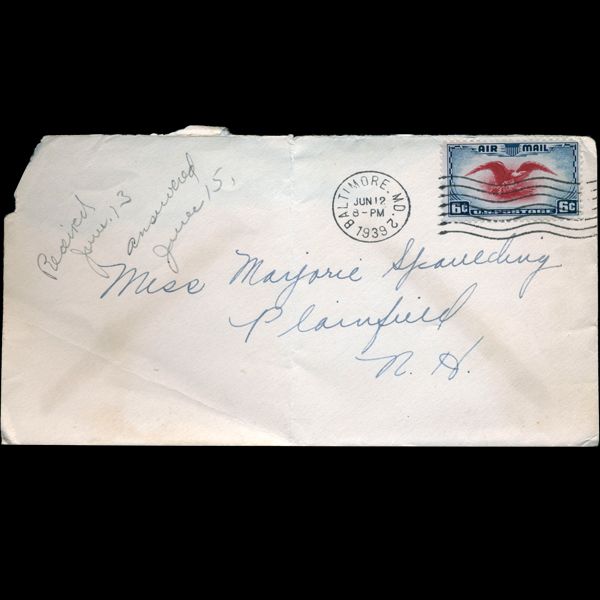 Received
June. 13
answered
June 15.
BALTIMORE, MD.
JUN 12
8-PM
1939
2
AIR MAIL
6¢ U.S. POSTAGE 6¢
Miss Marjorie Spaulding
Plainfield
N. H.